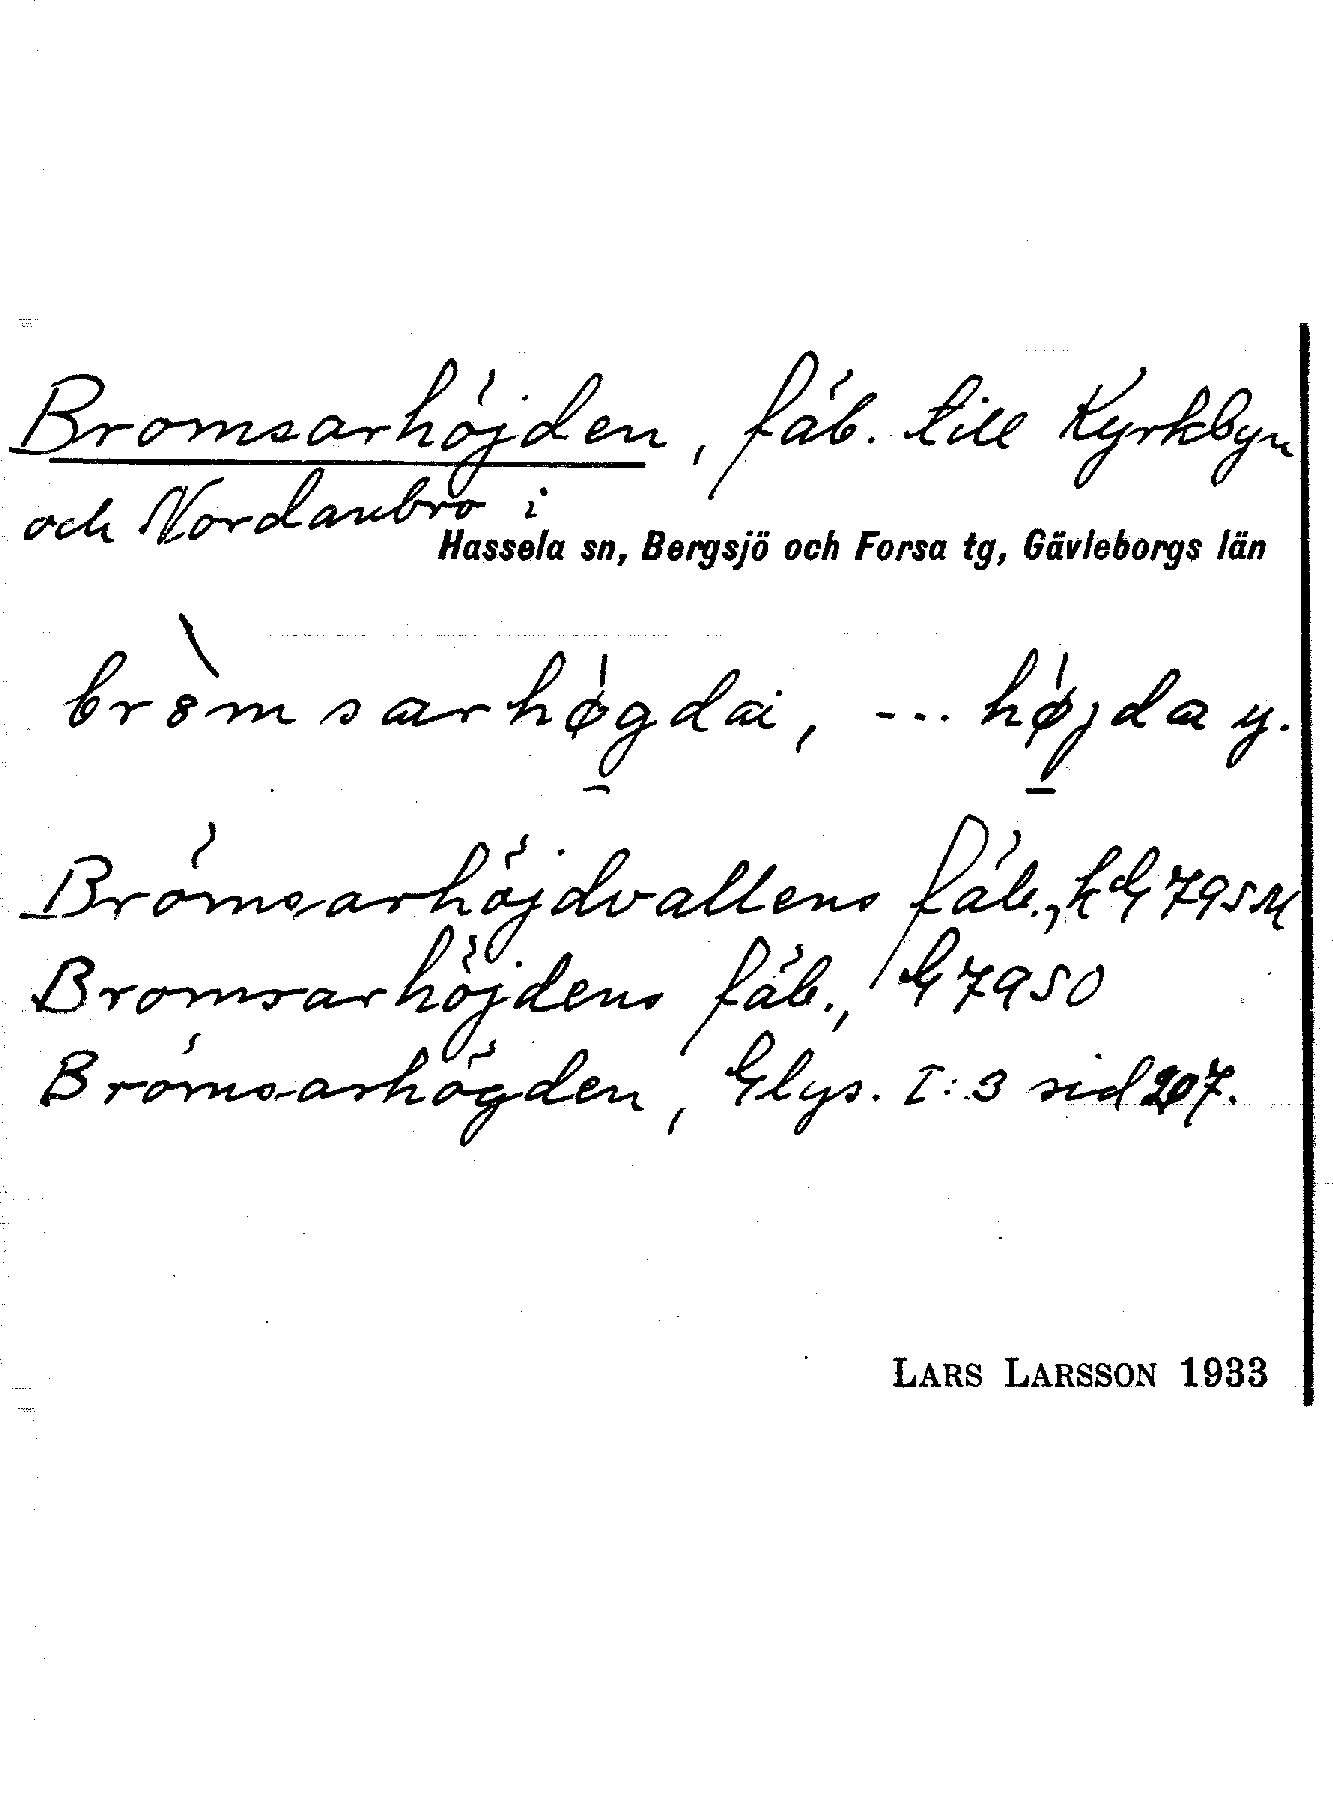 Bromsarhöjden, fäb. till Kyrkbyn
och Nordanbro i
Hassela sn, Bergsjö och Forsa tg, Gävleborgs län
bròmsarhøgdai, --- højda y.
Brömsarhöjdvallens fäb., kdG 795M
Bromsarhöjdens fäb., G7950
Brömsarhögden, Glys. I:3 sid 207.
LARS LARSSON 1933